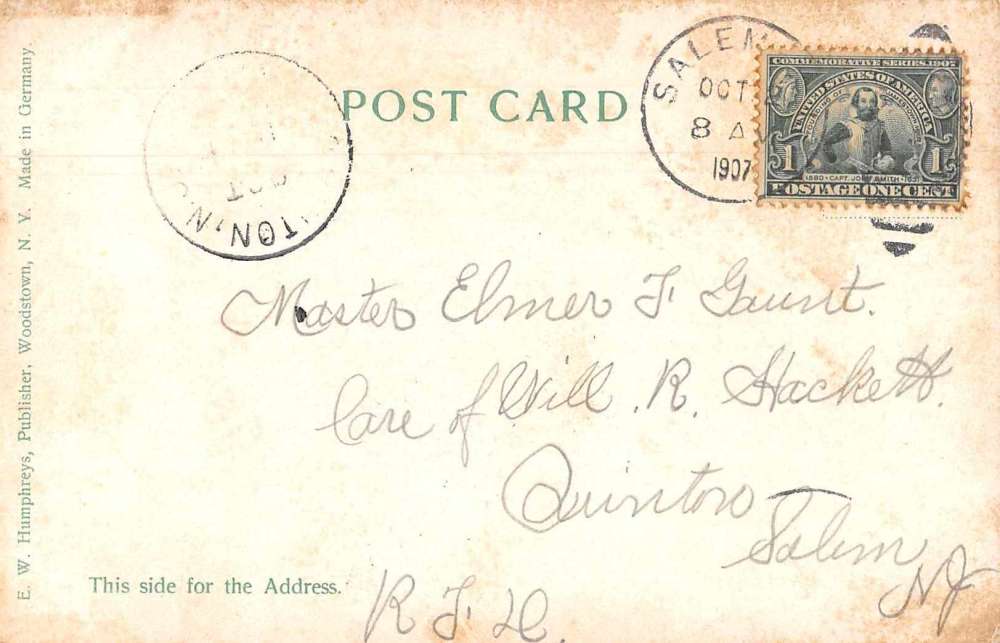 POST CARD
SALEM
OCT
8 A
1907
COMMEMORATIVE SERIES 1907
UNITED STATES OF AMERICA
1 1
1580 · CAPT. JOHN SMITH · 1631
POSTAGE ONE CENT
OCT
TON, N
Master Elmer F. Gaunt.
Care of Will. R. Hackett.
Quinton
Salem
NJ
R F D.
This side for the Address.
E. W. Humphreys, Publisher, Woodstown, N. Y. Made in Germany